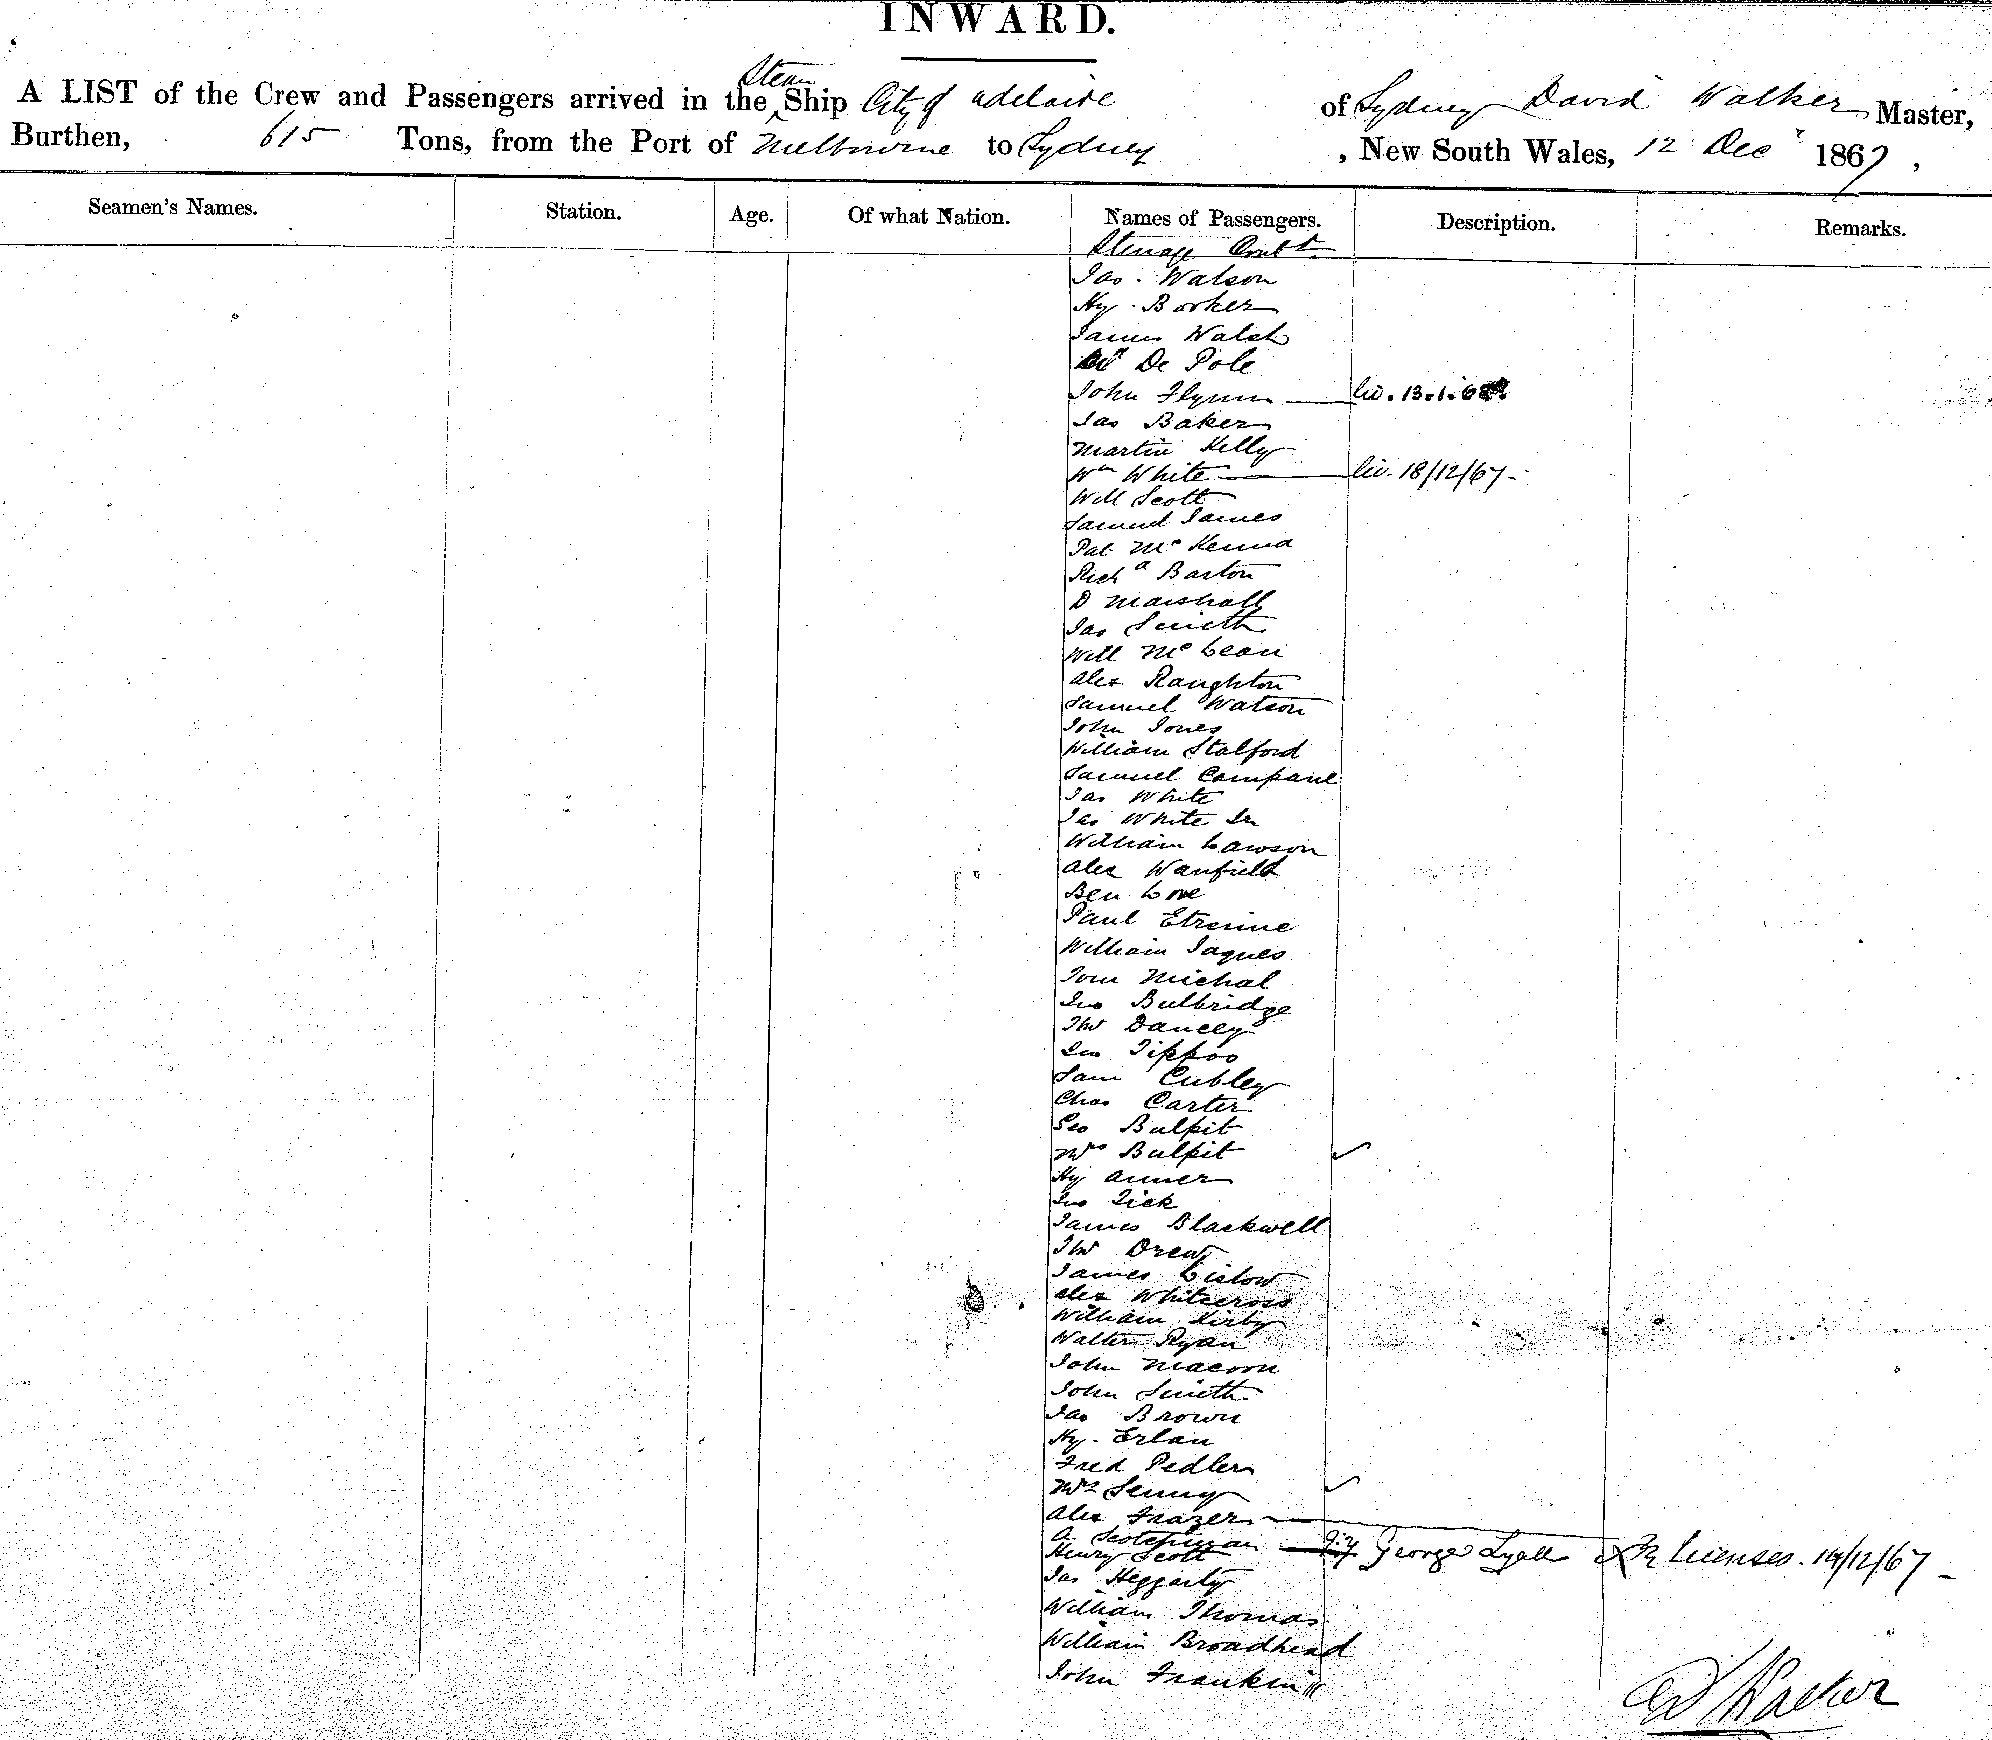 INWARD.
A LIST of the Crew and Passengers arrived in the Steam Ship City of Adelaide of Sydney David Walker Master,
Burthen, 615 Tons, from the Port of Melbourne to Sydney, New South Wales, 12 Dec 1867.
Seamen's Names. Station. Age. Of what Nation. Names of Passengers. Description. Remarks.
Steerage Contd
Jas. Watson
Hy. Barker
James Walsh
De Pole
John Flynn lic. 13.1.68
Jas Baker
Martin Kelly
Wm White lic. 18/12/67
Will Scott
Samuel James
Pat McKenna
Richd Barton
D Marshall
Jas Smith
Will McLean
Alex Raughton
Samuel Watson
John Jones
William Stalford
Samuel Company
Jas White
Jas White Jn
William Lawson
Alex Wanfield
Ben Love
Paul Etrenne
William Jaques
Tom Michal
Jno Bulbridge
Tho Dancey
Jno Tippoo
Sam Cubley
Chas Carter
Geo Bulpit
Mrs Bulpit
Hy Anner
Jno Tick
James Blackwell
Tho Drew
James Liston
Alex Whitecross
William Kirby
Walter Ryan
John Macoon
John Smith
Jas Brown
Hy. Erlan
Fred Pedler
Mrs Senny
Alex Frazer
A Scotchman George Lyall licenses. 19/12/67
Henry Scott
Jas Heggarty
William Thomas
William Broadhead
John Franklin
D Walker